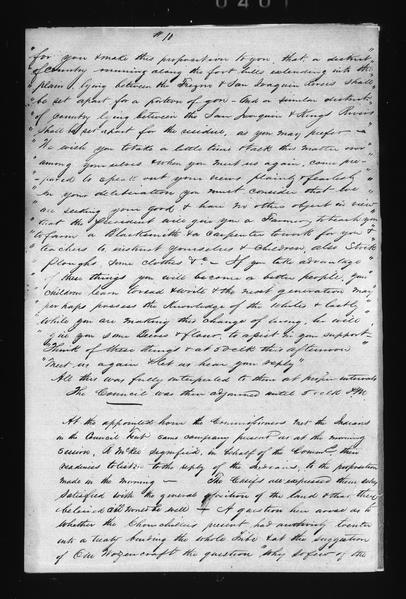 0401
# 10
"for you & make this proposition to you, that a district"
"of Country running along the foot hills extending into the"
"plain, lying between the Fresno & San Joaquin Rivers shall"
"be set apart for a portion of you – And a similar district"
"of Country lying between the San Joaquin & Kings Rivers"
"Shall be set apart for the residue, as you may prefer –"
"We wish you to take a little time & talk this matter over"
"among yourselves & when you meet us again, come pre-"
"pared to speak out your views plainly & fearlessly"
"In your deliberation you must consider that we"
"are seeking your good, & have no other object in view"
"that the President will give you a Farmer, to teach you"
"to farm a Blacksmith & a Carpenter to work for you &"
"teachers to instruct yourselves & Children, also Stock"
"Ploughs, some clothes &c – If you take advantage"
"these things you will become a better people, your"
"Children learn to read & write & the next generation may"
"perhaps possess the Knowledge of the Whites & lastly"
"while you are making this change of living, he will"
"give you some Beeves & flour, to assist in your support"
"Think of these things & at 5 oclk this afternoon"
"Meet us again & let us hear your reply"
All this was fully interpreted to them at proper intervals
The Council was then adjourned until 5 oclk P.M.
At the appointed hour the Commissioners met the Indians
in the Council Tent same company present as at the morning
session, Col McKee signified, in behalf of the Comrs, their
readiness to listen to the reply of the Indians, to the proposition
made in the morning – The Chiefs all expressed them selves
Satisfied with the general position of the land & that they
believed all would be well – A question here arose as to
whether the Chouchilies present had authority to enter
into a treaty binding the whole tribe & at the suggestion
of Col Wozencraft the question "why so few of the